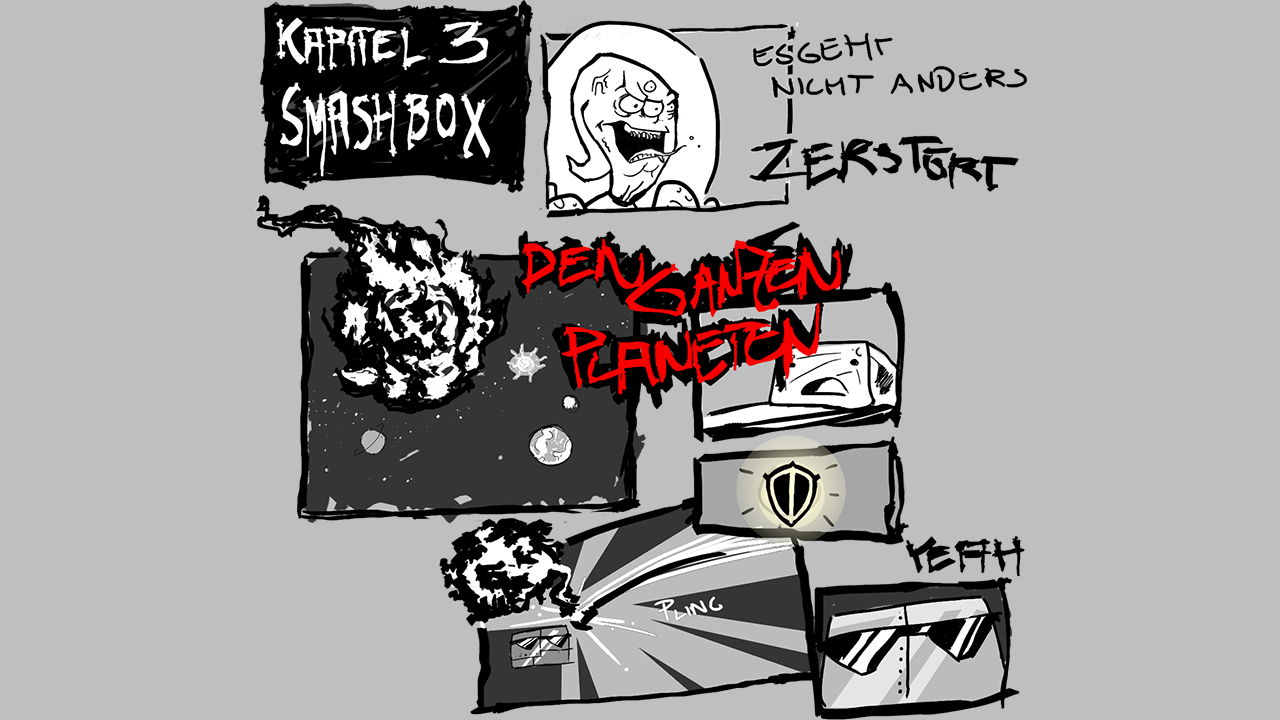 KAPITEL 3
SMASHBOX
ES GEHT
NICHT ANDERS
ZERSTÖRT
DEN GANZEN
PLANETEN
PLING
YEAH